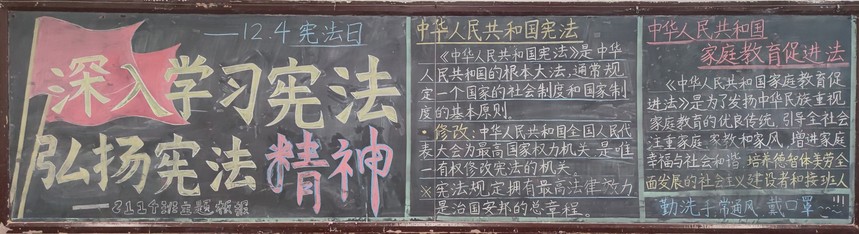 —12.4宪法日
深入学习宪法
弘扬宪法精神
——2114班主题板报
中华人民共和国宪法
《中华人民共和国宪法》是中华
人民共和国的根本大法,通常规
定一个国家的社会制度和国家制
度的基本原则。
·修改:中华人民共和国全国人民代
表大会为最高国家权力机关,是唯
一有权修改宪法的机关。
※宪法规定拥有最高法律效力
是治国安邦的总章程。
中华人民共和国
家庭教育促进法
《中华人民共和国家庭教育促
进法》是为了发扬中华民族重视
家庭教育的优良传统,引导全社会
注重家庭、家教和家风,增进家庭
幸福与社会和谐,培养德智体美劳全
面发展的社会主义建设者和接班人
勤洗手 常通风 戴口罩~~!!!